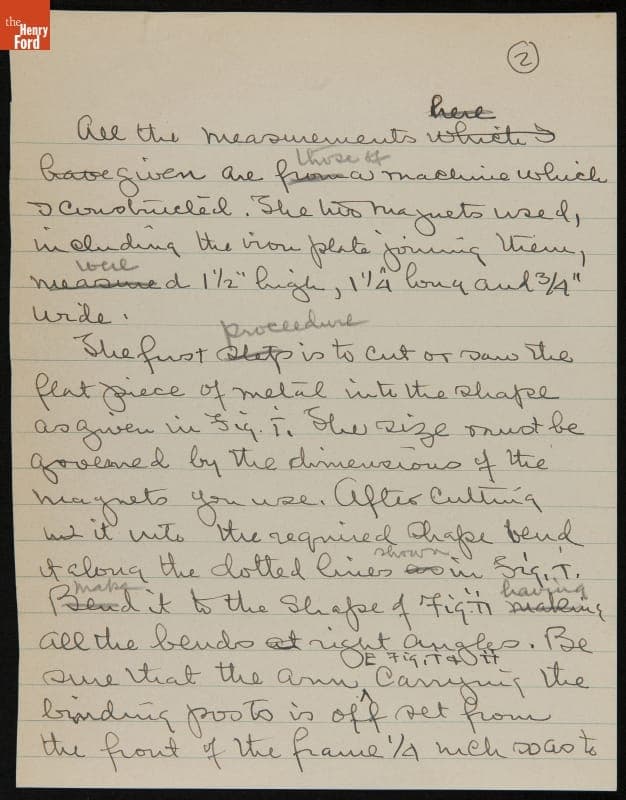 the
Henry
Ford
2
here
All the measurements which I
have given are from a machine which
those of
I constructed. The two magnets used,
including the iron plate joining them,
were
measured 1 1/2" high, 1 1/4" long and 3/4"
wide.
proceedure
The first step is to cut or saw the
flat piece of metal into the shape
as given in Fig. I. The size must be
governed by the dimensions of the
magnets you use. After cutting
it into the required shape bend
it along the dotted lines as in Fig. I.
shown
make
having
Bend it to the shape of Fig II making
all the bends at right angles. Be
OE Fig. I & II
sure that the arm Carrying the
binding posts is off set from
the front of the frame 1/4 inch so as to